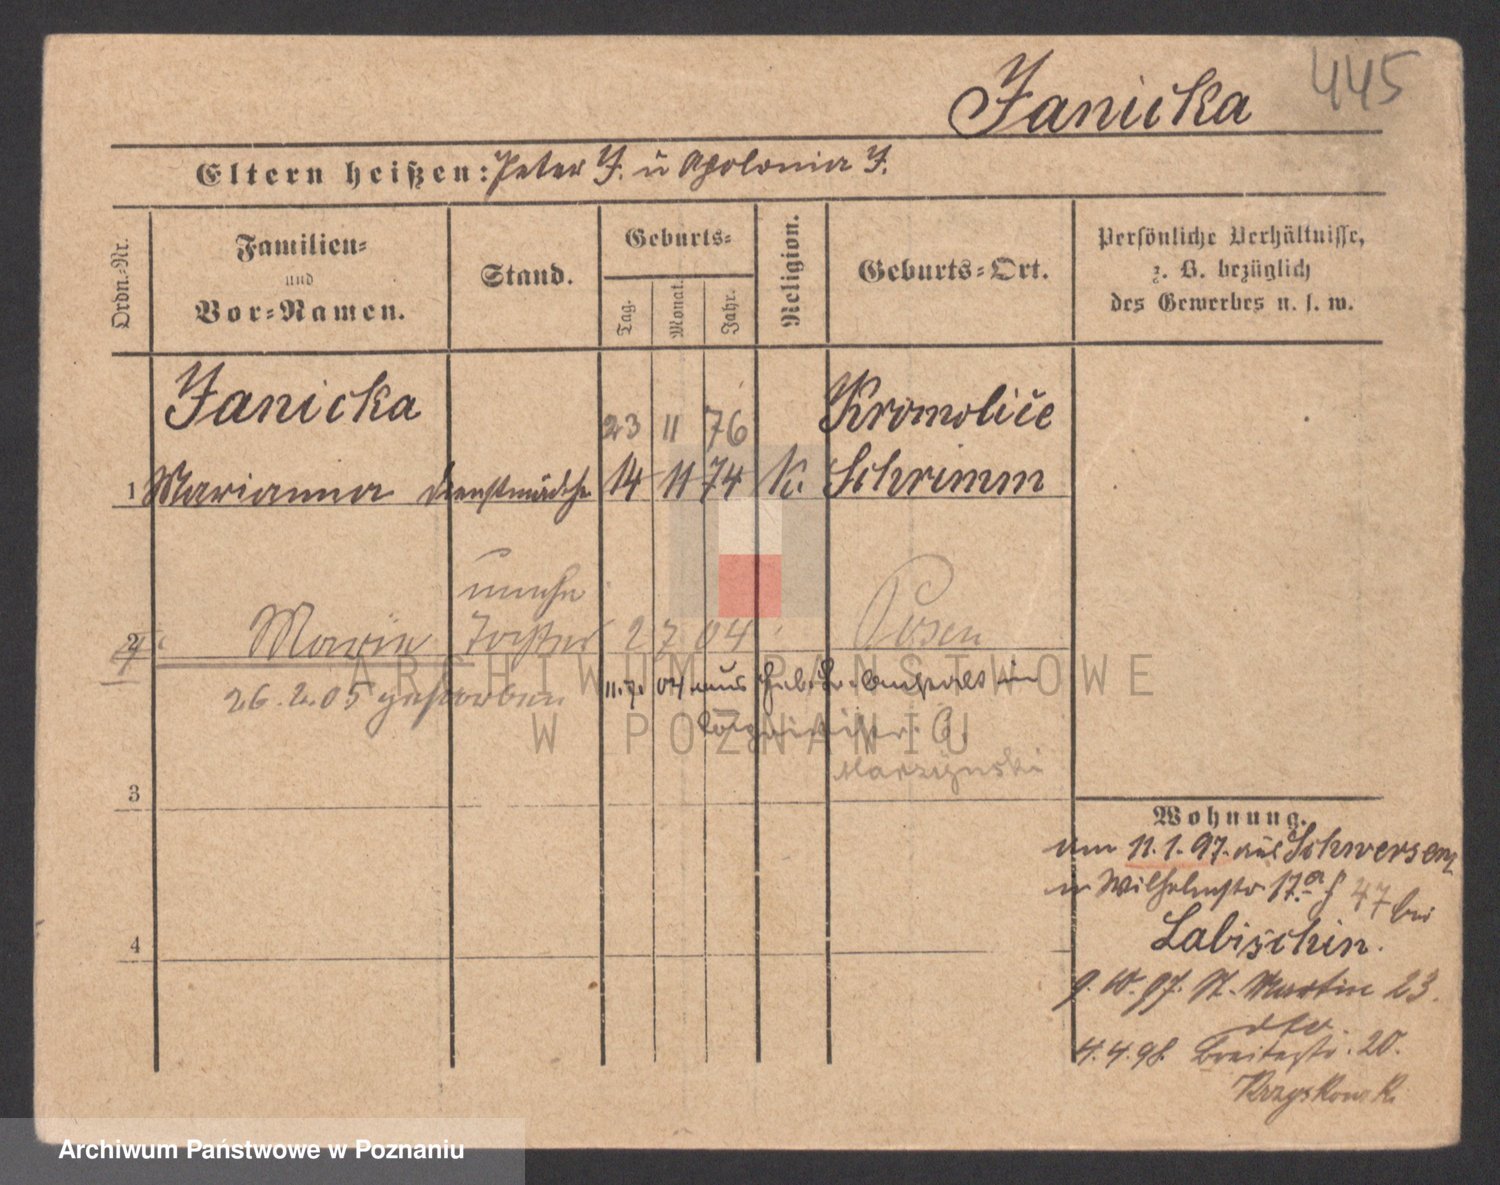 445
Janicka
Eltern heißen: Peter J. u Apolonia J.
Ordn.-Nr.
Familien- und Vor-Namen.
Stand.
Geburts-
Tag.
Monat.
Jahr.
Religion.
Geburts-Ort.
Persönliche Verhältnisse,
z. B. bezüglich
des Gewerbes u. s. w.
Janicka 23 11 76 Kromolice
1 Marianna Dienstmädch 14 11 74 K. Schrimm
unehe
2 Marie Tochter 2 7 04 Posen
26.2.05 gestorben 11.7. 04 aus
Marzynski
3
4
Wohnung.
am 11.1.97. aus Schwersenz
Wilhelmstr 17a 47 bei
Labischin.
9.10.97. St. Martin 23.
4.4.98. Breitestr. 20.
Krzyskowski
ARCHIWUM PAŃSTWOWE
W POZNANIU
Archiwum Państwowe w Poznaniu